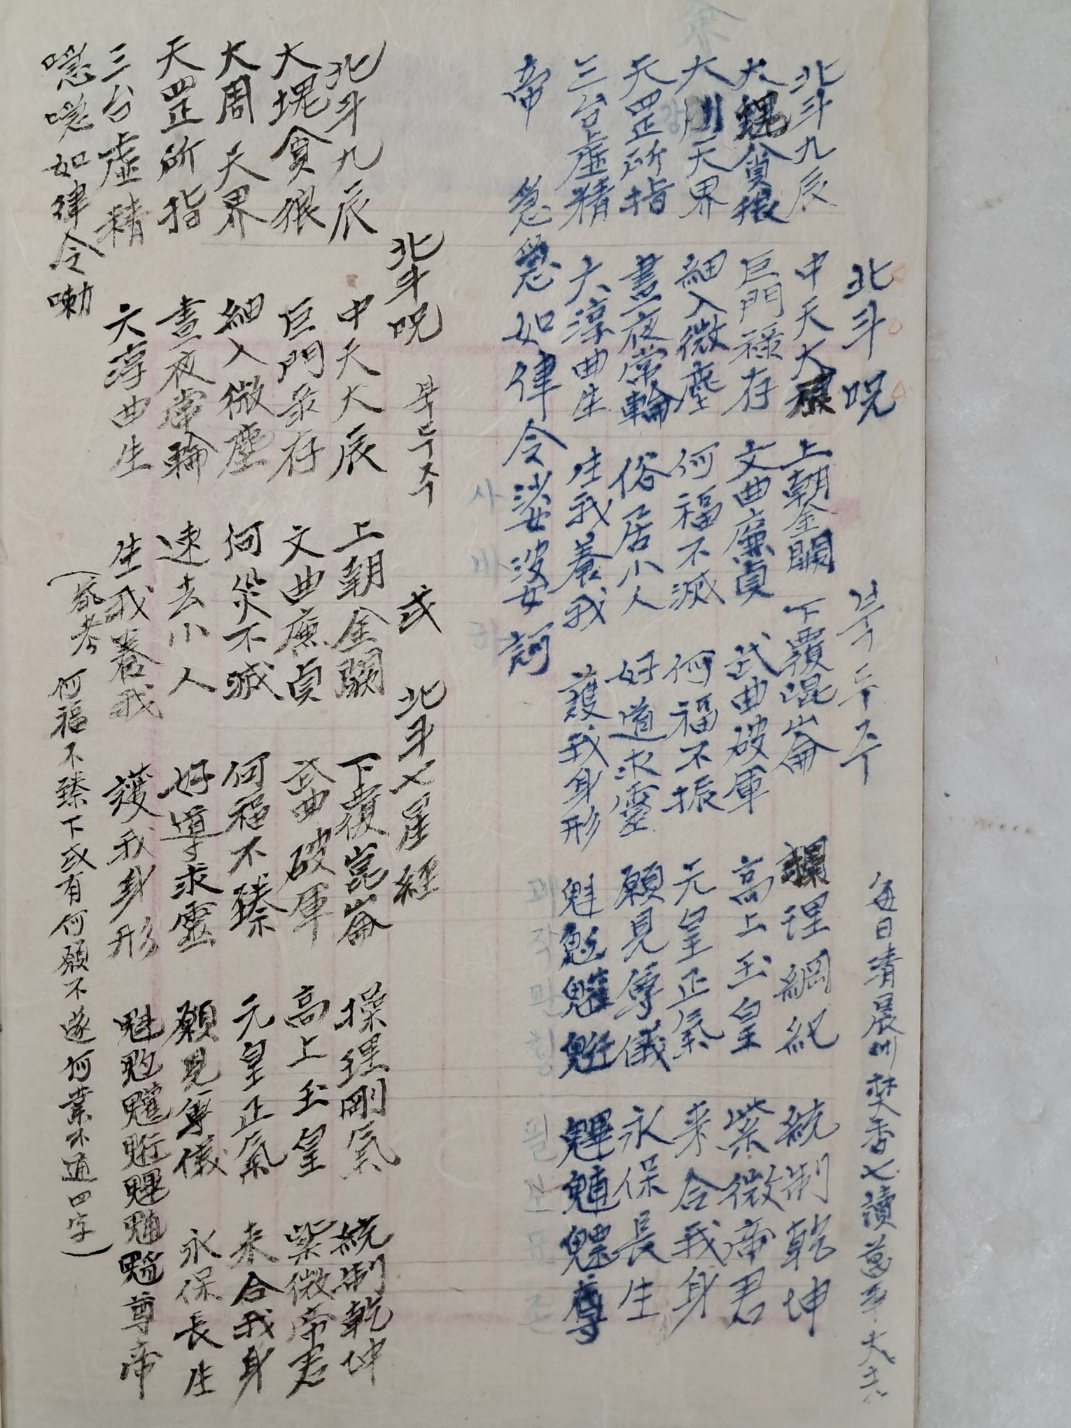 北斗呪 북두주 每日清晨 焚香七讀萬事大吉
北斗九辰 中天大 上朝金闕 下覆混崙 理綱紀 統制乾坤
大魁貪狼 巨門祿存 文曲廉貞 武曲破軍 高上玉皇 紫微帝君
大周天界 細入微塵 何福不滅 何福不振 元皇正氣 来合我身
天罡所指 晝夜常輪 俗居小人 好道求靈 願見尊儀 永保長生
三台虛精 六淳曲生 生我養我 護我身形 魁䰢魖魓䰣尊
帝 急急如律令娑婆訶
北斗呪 북두주 或 北斗七星經
北斗九辰 中天大辰 上朝金闕 下覆崑崙 操理剛氣 統制乾坤
大塊貪狼 巨門彔存 文曲廉貞 武曲破軍 高上玉皇 紫微帝君
大周天界 細入微塵 何災不滅 何福不臻 元皇正氣 来合我身
天罡所指 晝夜常輪 速去小人 好導求靈 願見尊儀 永保長生
三台虛精 六淳曲生 生我養我 護我身形 魁 尊帝
唿唿如律令
(參考 何福不臻下或有何願不遂何業不通四字)